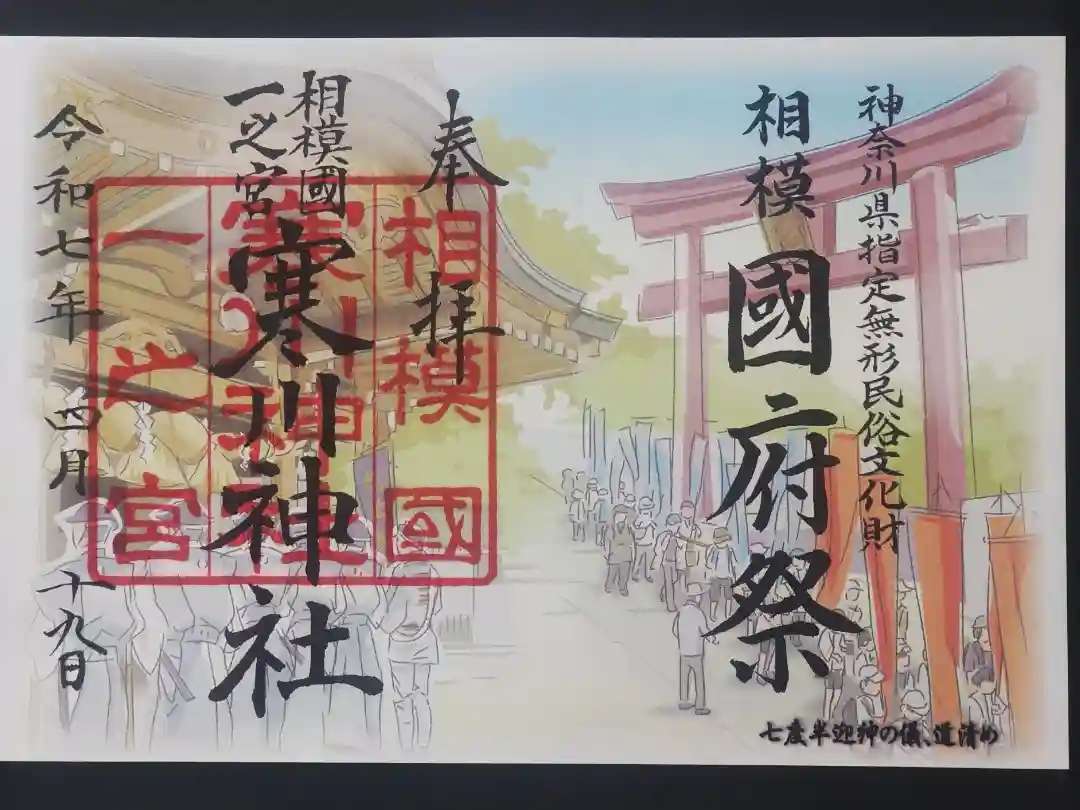 神奈川県指定無形民俗文化財
相模
國府祭
七度半迎神の儀、道清め
奉拝
相模國
一之宮
寒川神社
相模國
寒川神社
一之宮
令和七年四月十九日